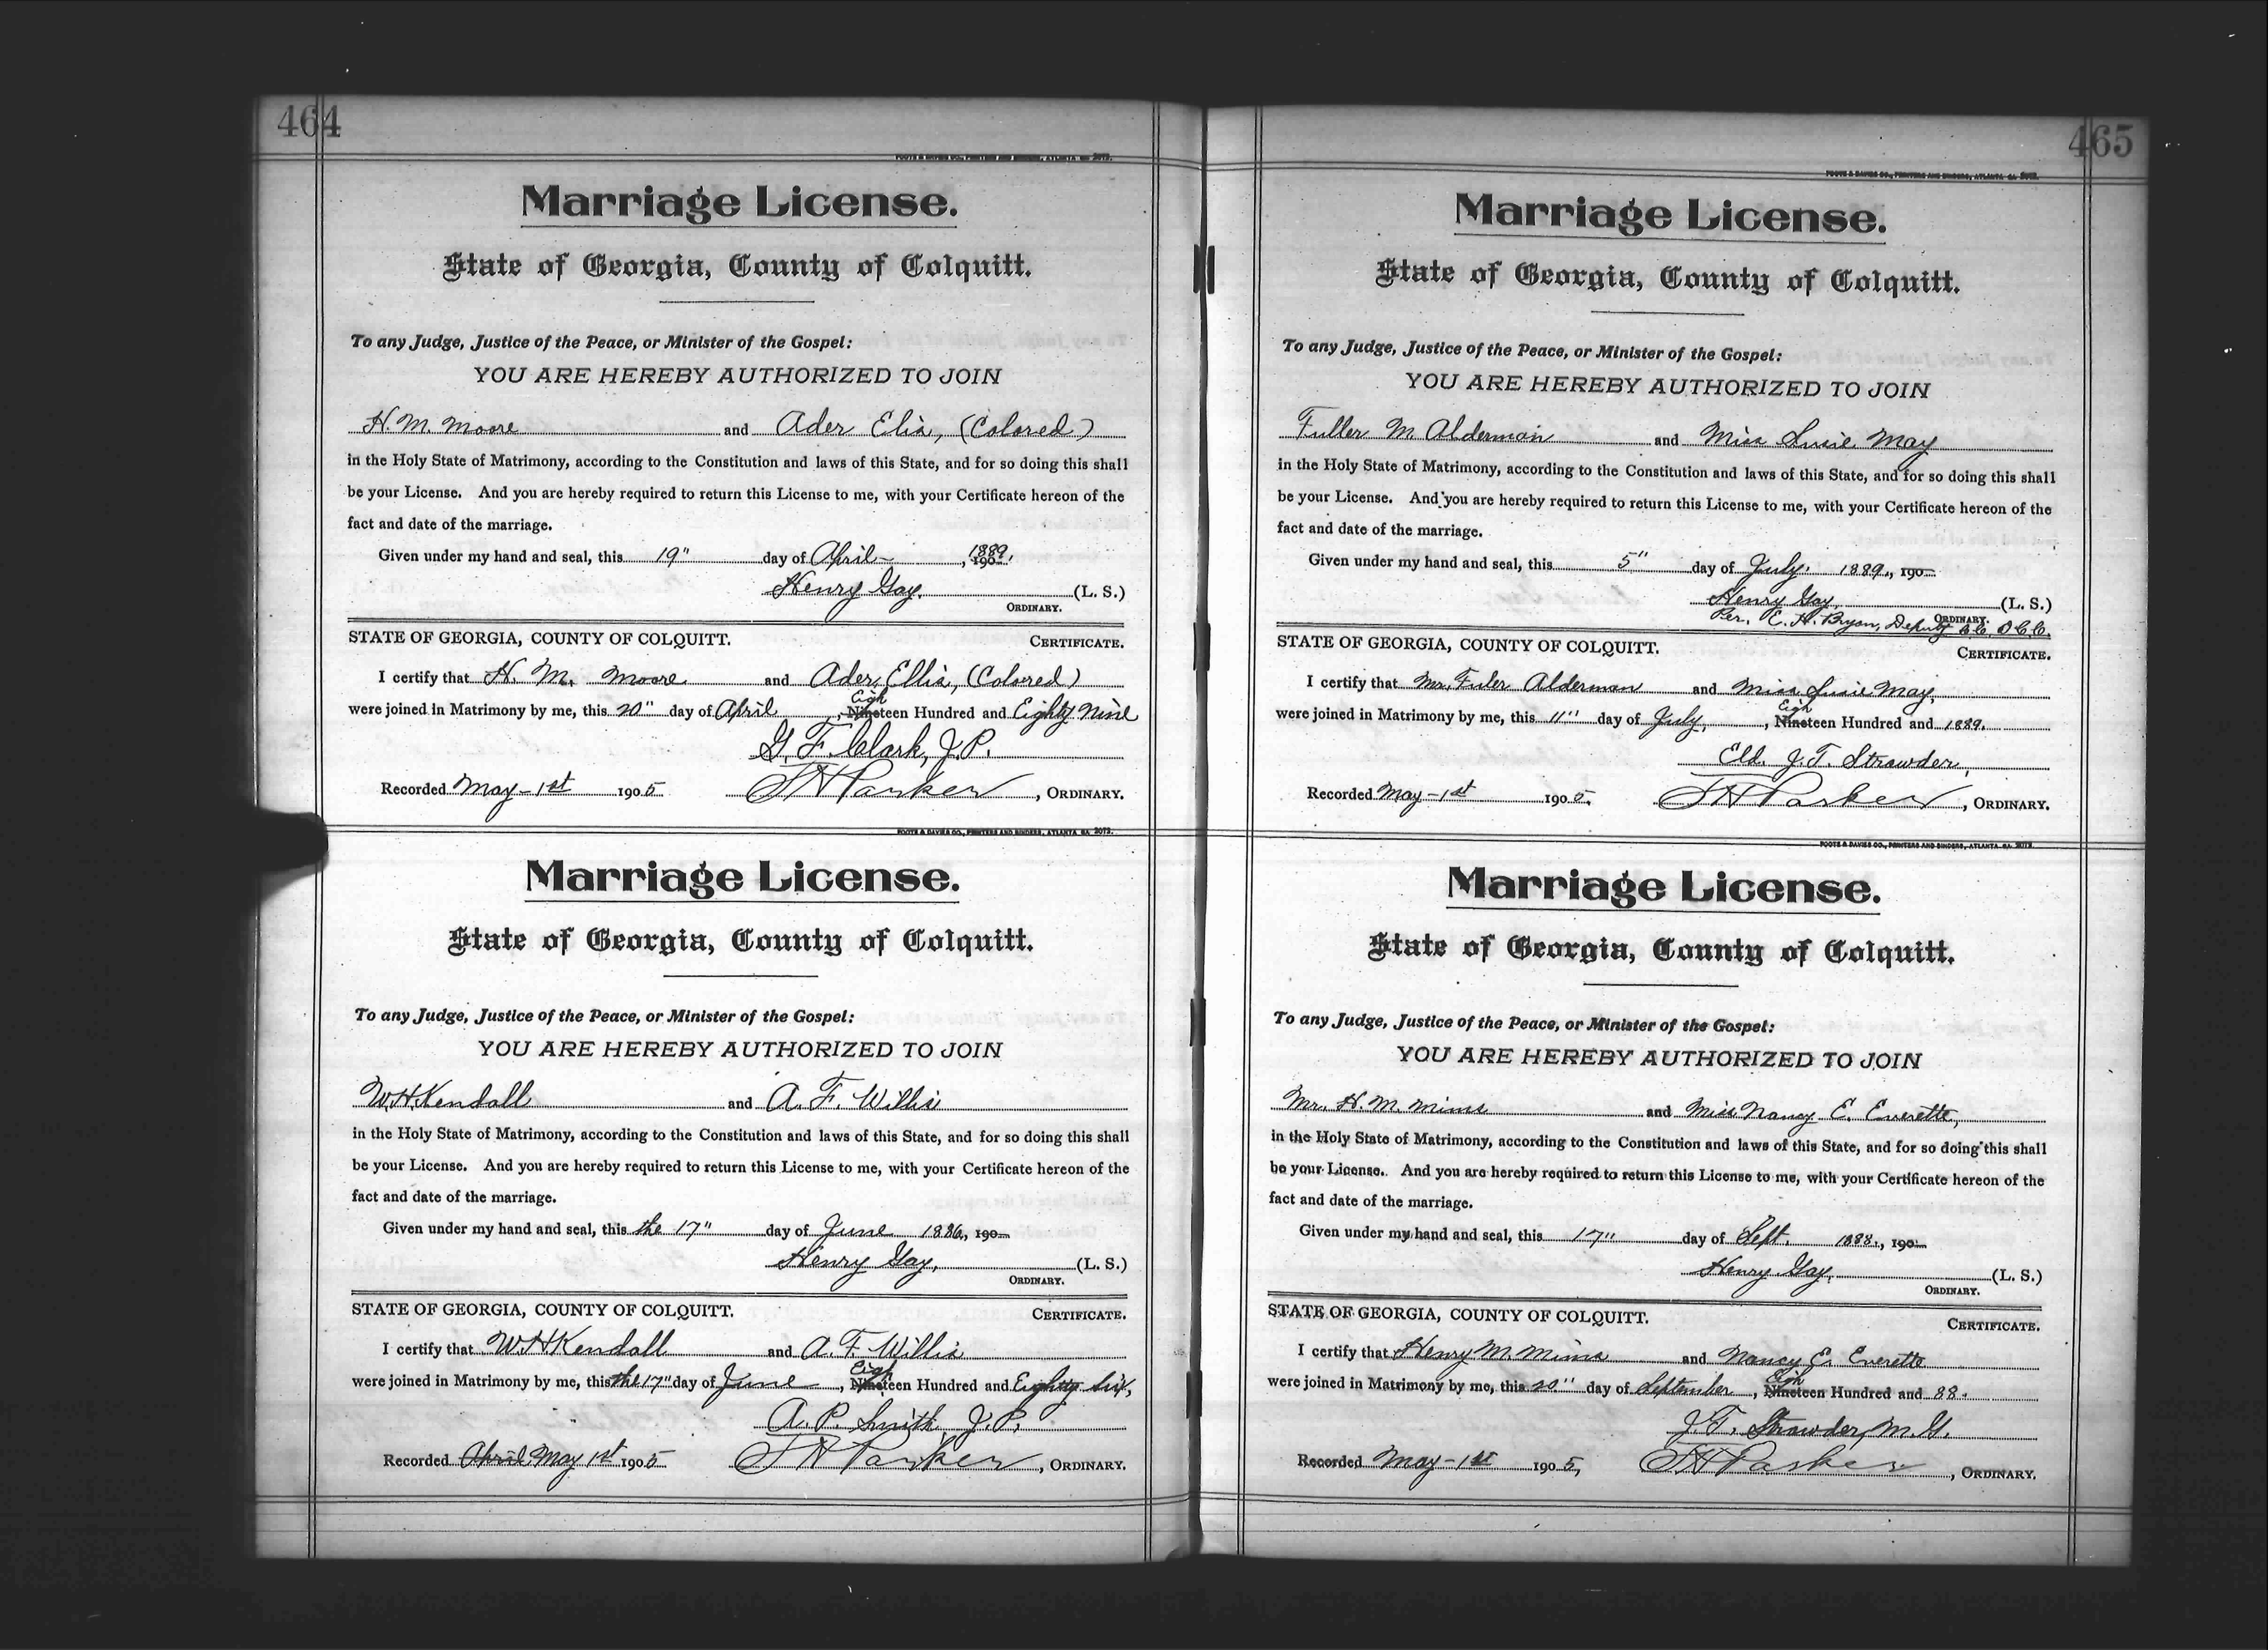 464
FOOTE & DAVIES CO., PRINTERS AND BINDERS, ATLANTA, GA. 2072.
Marriage License.
State of Georgia, County of Colquitt.
To any Judge, Justice of the Peace, or Minister of the Gospel:
YOU ARE HEREBY AUTHORIZED TO JOIN
H. M. Moore and Ader Elis, (Colored)
in the Holy State of Matrimony, according to the Constitution and laws of this State, and for so doing this shall
be your License. And you are hereby required to return this License to me, with your Certificate hereon of the
fact and date of the marriage.
Given under my hand and seal, this 19" day of April 1889, 190
Henry Gay. (L. S.)
ORDINARY.
STATE OF GEORGIA, COUNTY OF COLQUITT. CERTIFICATE.
I certify that H. M. Moore and Ader Ellis, (Colored)
were joined in Matrimony by me, this 20" day of April, Eigh Nineteen Hundred and Eighty Nine
G. F. Clark, J. P.
Recorded May-1st 1905 , ORDINARY.
FOOTE & DAVIES CO., PRINTERS AND BINDERS, ATLANTA, GA. 2072.
Marriage License.
State of Georgia, County of Colquitt.
To any Judge, Justice of the Peace, or Minister of the Gospel:
YOU ARE HEREBY AUTHORIZED TO JOIN
W. H. Kendall and A. F. Willis
in the Holy State of Matrimony, according to the Constitution and laws of this State, and for so doing this shall
be your License. And you are hereby required to return this License to me, with your Certificate hereon of the
fact and date of the marriage.
Given under my hand and seal, this the 17" day of June 1886, 190
Henry Gay, (L. S.)
ORDINARY.
STATE OF GEORGIA, COUNTY OF COLQUITT. CERTIFICATE.
I certify that W. H. Kendall and A. F. Willis
were joined in Matrimony by me, this the 17" day of June, Eigh Nineteen Hundred and Eighty Six,
A. P. Smith, J. P.
Recorded April May 1st 1905 J H Parker, ORDINARY.
465
FOOTE & DAVIES CO., PRINTERS AND BINDERS, ATLANTA, GA. 2072.
Marriage License.
State of Georgia, County of Colquitt.
To any Judge, Justice of the Peace, or Minister of the Gospel:
YOU ARE HEREBY AUTHORIZED TO JOIN
Fuller M Alderman and Miss Susie May
in the Holy State of Matrimony, according to the Constitution and laws of this State, and for so doing this shall
be your License. And you are hereby required to return this License to me, with your Certificate hereon of the
fact and date of the marriage.
Given under my hand and seal, this 5" day of July. 1889., 190
Henry Gay, (L. S.)
ORDINARY.
Per. R. H. Bryan, Deputy C. C. D. C. C.
STATE OF GEORGIA, COUNTY OF COLQUITT. CERTIFICATE.
I certify that Mr. Fuler Alderman and Miss Susie May,
were joined in Matrimony by me, this 11" day of July, Eigh Nineteen Hundred and 1889.
Eld. J. T. Strawder,
Recorded May-1st 1905. J H Parker, ORDINARY.
FOOTE & DAVIES CO., PRINTERS AND BINDERS, ATLANTA, GA. 2072.
Marriage License.
State of Georgia, County of Colquitt.
To any Judge, Justice of the Peace, or Minister of the Gospel:
YOU ARE HEREBY AUTHORIZED TO JOIN
Mr. H. M. Mims and Miss Nancy E. Everette,
in the Holy State of Matrimony, according to the Constitution and laws of this State, and for so doing this shall
be your License. And you are hereby required to return this License to me, with your Certificate hereon of the
fact and date of the marriage.
Given under my hand and seal, this 17" day of Sept. 1888., 190
Henry Gay, (L. S.)
ORDINARY.
STATE OF GEORGIA, COUNTY OF COLQUITT. CERTIFICATE.
I certify that Henry M. Mims and Nancy E. Everette
were joined in Matrimony by me, this 20" day of September, Eigh Nineteen Hundred and 88.
J. T. Strawder, M. G.
Recorded May-1st 1905, J H Parker, ORDINARY.